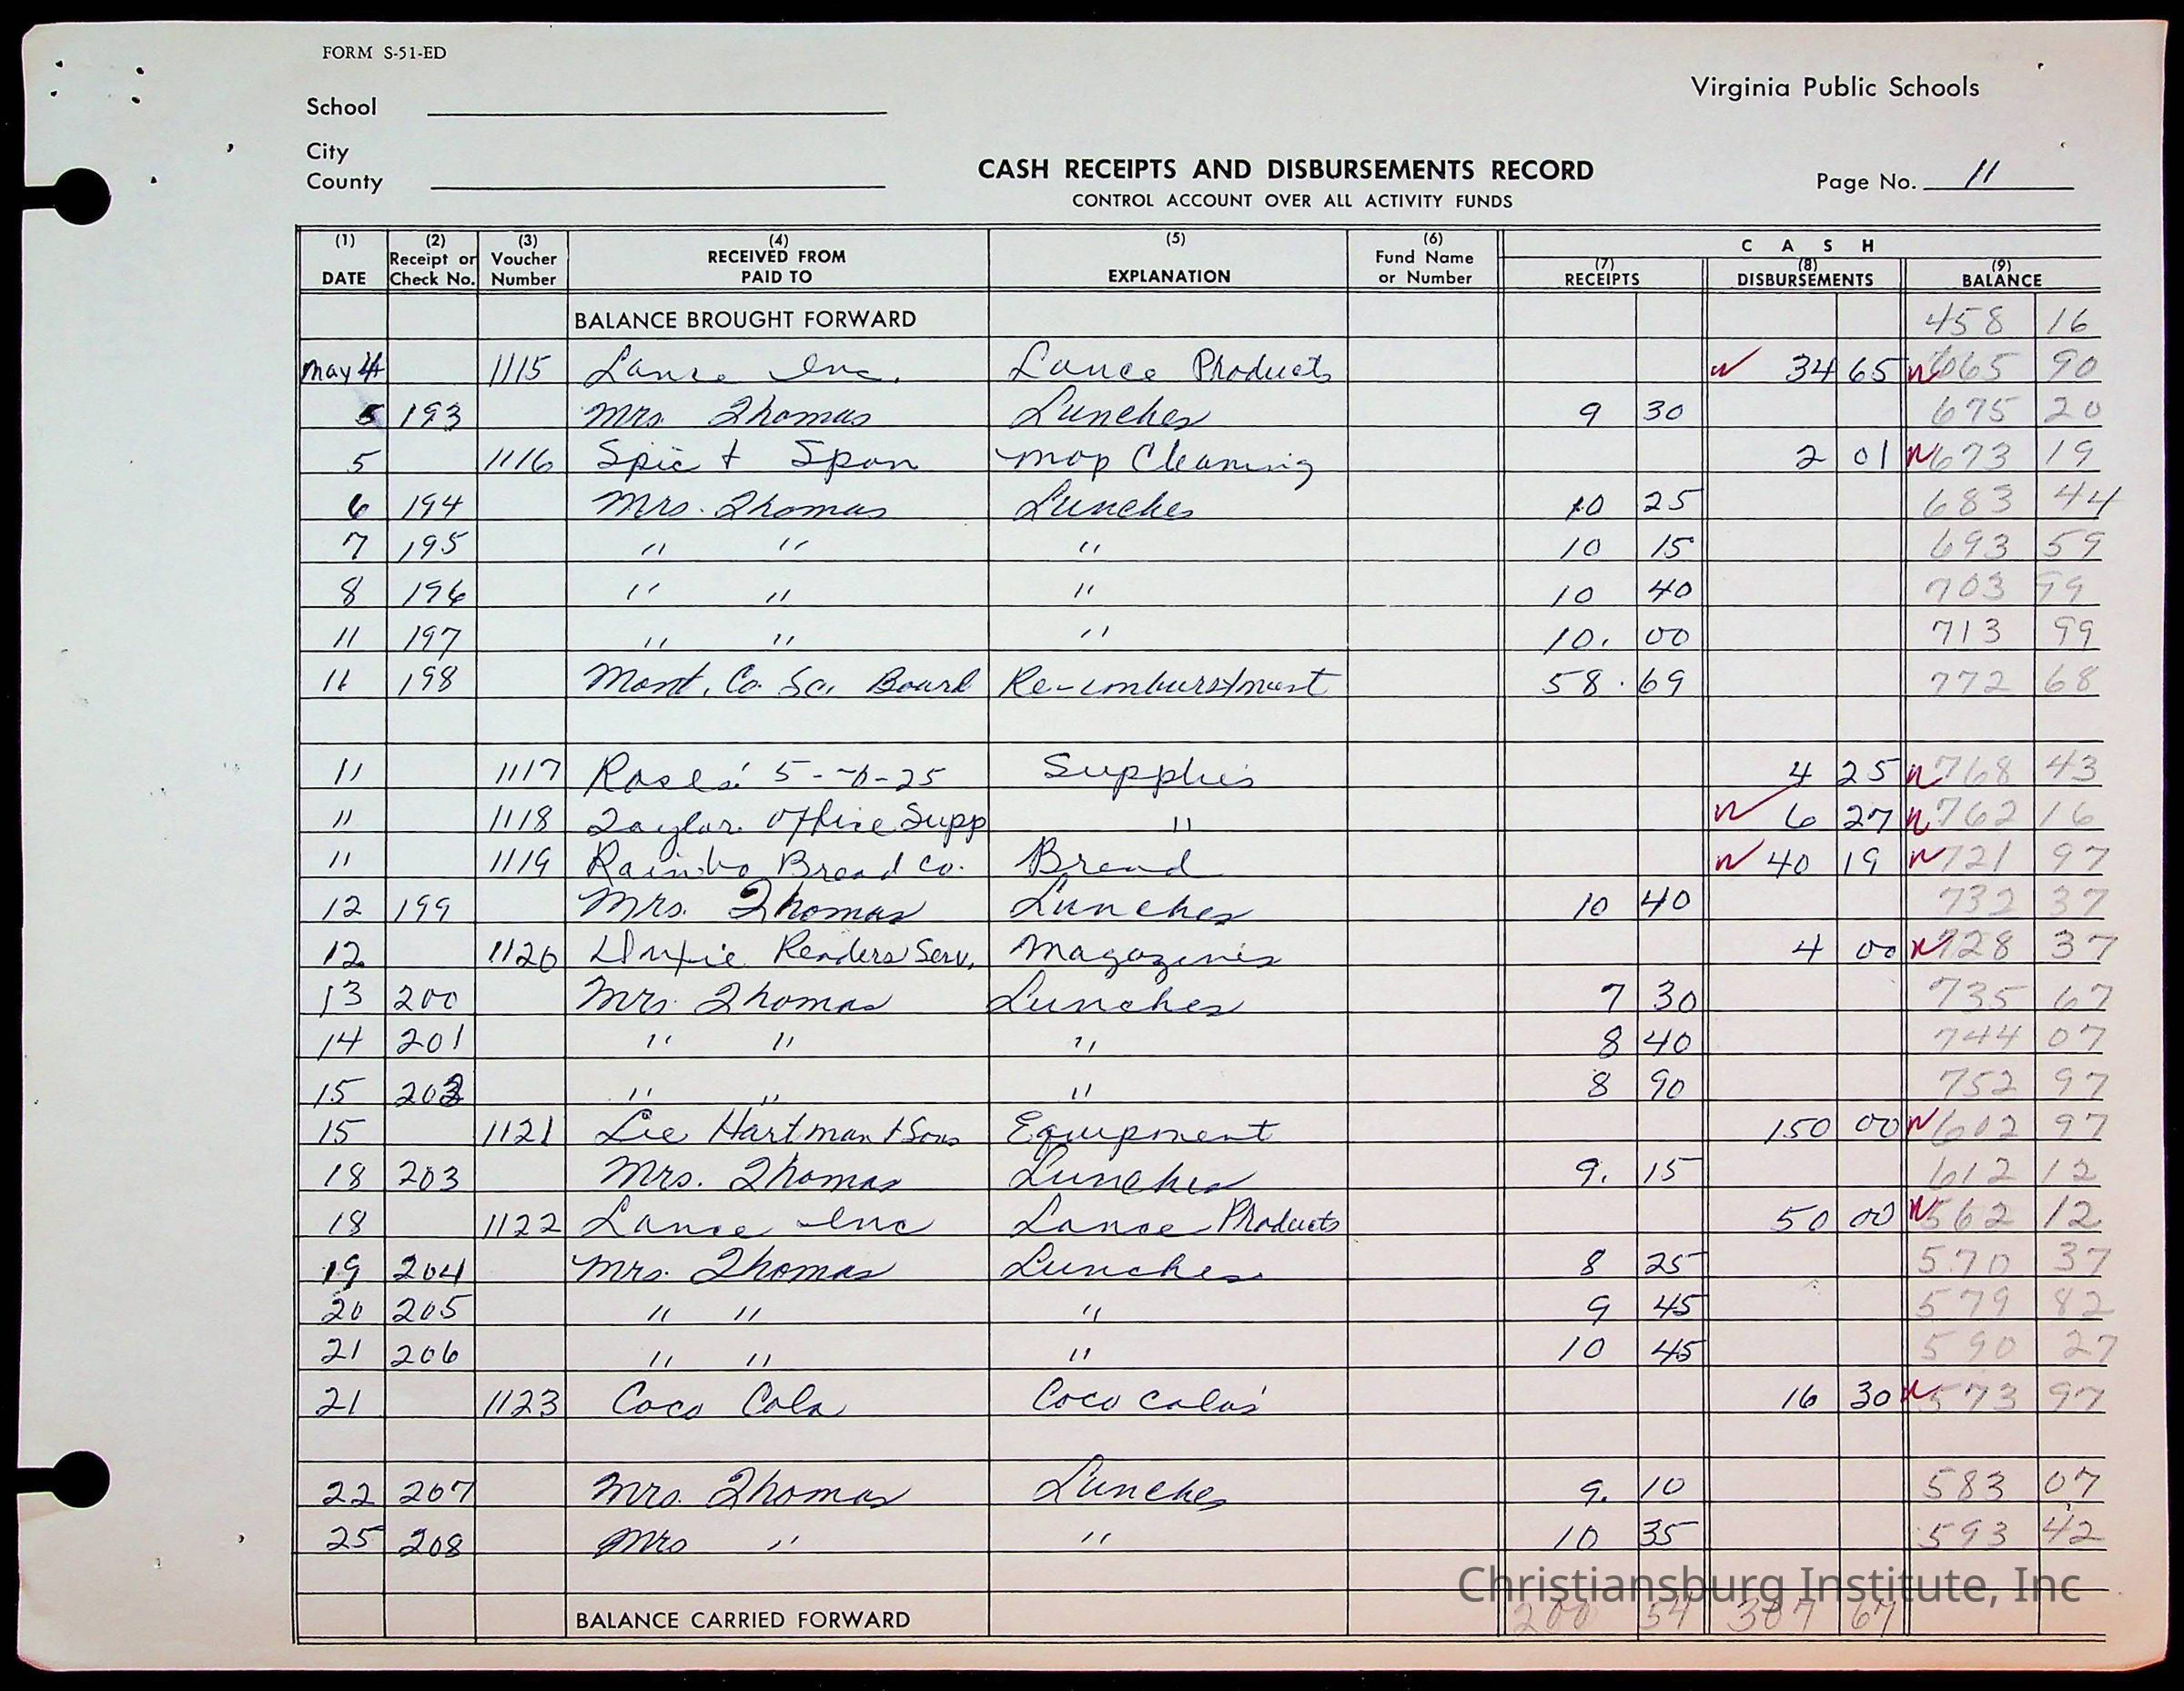 FORM S-51-ED
Virginia Public Schools
School
City
County
CASH RECEIPTS AND DISBURSEMENTS RECORD
CONTROL ACCOUNT OVER ALL ACTIVITY FUNDS
Page No. 11
(1) DATE (2) Receipt or Check No. (3) Voucher Number (4) RECEIVED FROM PAID TO (5) EXPLANATION (6) Fund Name or Number CASH (7) RECEIPTS (8) DISBURSEMENTS (9) BALANCE
BALANCE BROUGHT FORWARD 458 16
May 4 1115 Lance Inc. Lance Products 34 65 665 90
5 193 Mrs. Thomas Lunches 9 30 675 20
5 1116 Spic + Span Mop Cleaning 2 01 673 19
6 194 Mrs. Thomas Lunches 10 25 683 44
7 195 " " " 10 15 693 59
8 196 " " " 10 40 703 99
11 197 " " " 10. 00 713 99
11 198 Mont. Co. Sc. Board 58. 69 772 68
11 1117 Roses' Supplies 4 25 768 43
11 1118 Taylor Office Supp " 6 27 762 16
11 1119 Rainbo Bread Co. Bread 40 19 721 97
12 199 Mrs. Thomas Lunches 10 40 732 37
12 1120 Readers Serv. Magazines 4 00 728 37
13 200 Mrs. Thomas Lunches 7 30 735 67
14 201 " " " 8 40 744 07
15 202 " " " 8 90 752 97
15 1121 Lee Hartman + Sons Equipment 150 00 602 97
18 203 Mrs. Thomas Lunches 9. 15 612 12
18 1122 Lance Inc Lance Products 50 00 562 12
19 204 Mrs. Thomas Lunches 8 25 570 37
20 205 " " " 9 45 579 82
21 206 " " " 10 45 590 27
21 1123 Coco Cola Coco Colas' 16 30 573 97
22 207 Mrs. Thomas Lunches 9. 10 583 07
25 208 Mrs " " 10 35 593 42
Christiansburg Institute, Inc
BALANCE CARRIED FORWARD 200 54 307 67